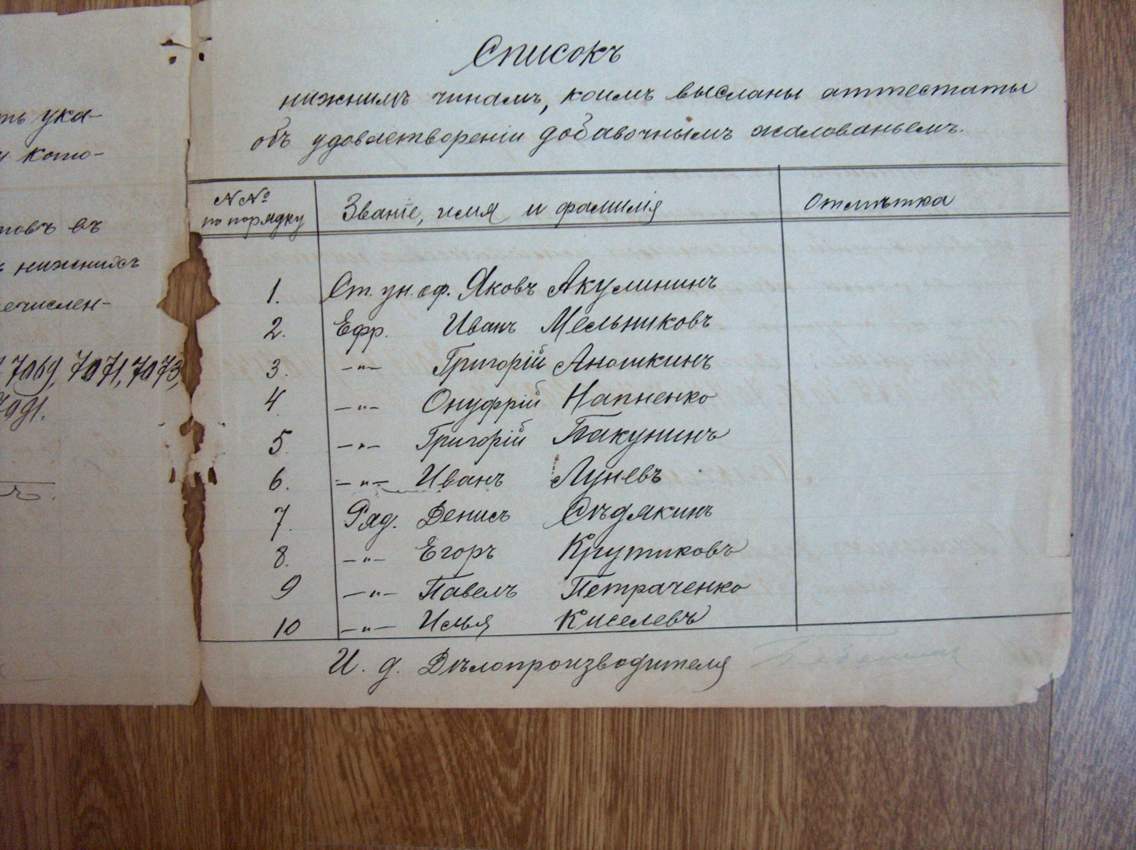 ть ука-
кото-
товъ въ
нижнихъ
речислен-
7069, 7071, 7073,
7091.
Списокъ
нижнимъ чинамъ, коимъ высланы аттестаты
объ удовлетвореніи добавочнымъ жалованьемъ.
№№ по порядку Званіе, имя и фамилія Отмѣтка
1. Ст. ун. оф. Яковъ Акулининъ
2. Ефр. Иванъ Мельниковъ
3. —„— Григорій Аношкинъ
4 —„— Онуфрій Напненко
5 —„— Григорій Бакунинъ
6. —„— Иванъ Луневъ
7 Ряд. Денисъ Сѣдякинъ
8. —„— Егоръ Крутиковъ
9 —„— Павелъ Петраченко
10 —„— Илья Киселевъ
И. д. Дѣлопроизводителя